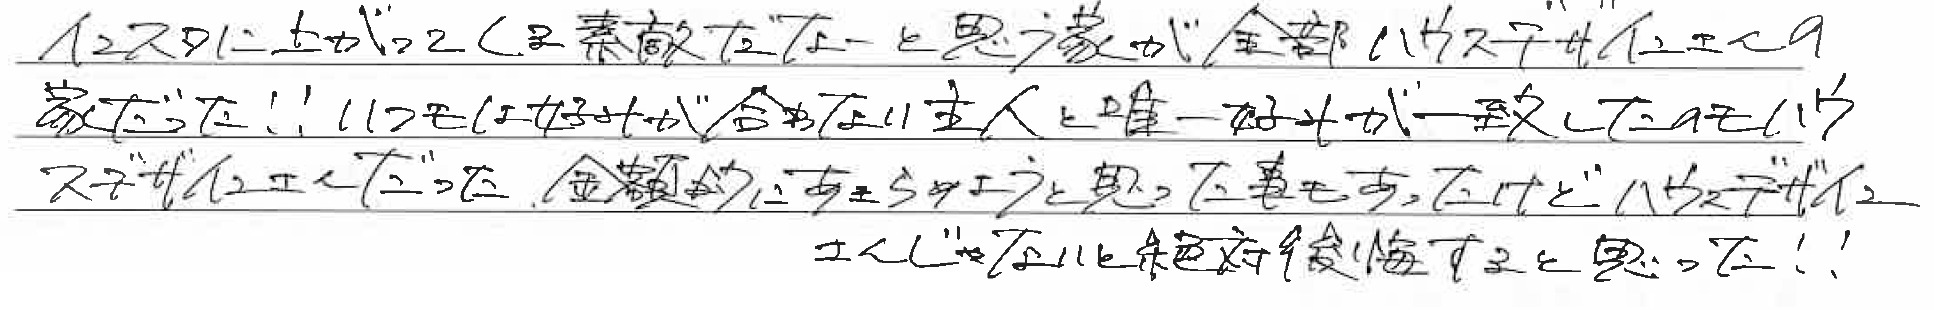 インスタに上がってくる素敵だなーと思う家が全部ハウスデザインさんの
家だった!!いつもは好みが合わない主人と唯一好みが一致したのもハウ
スデザインさんだった 金額的にあきらめようと思った事もあったけどハウスデザイン
さんじゃないと絶対後悔すると思った!!